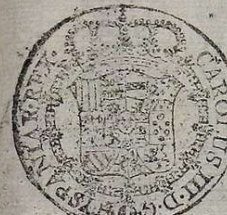 CAROLUS III. D. G. HISPANIAR. REX.